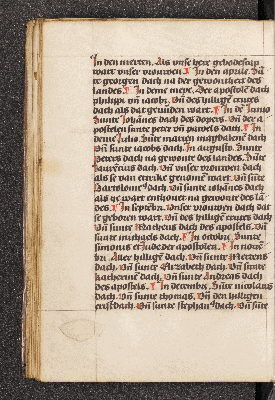 In den merten. Als vnse here gebodescap
wart vnser vrouwen. In den aprille. Sūte
georgen dach na der gewoenheit des
landes. In deme meye. Der apostelē dach
philippi vn̄ iacobi. Vn̄ des hilligē cruces
dach als dat gevunden wart. In dē iunio
Sunte Johānes dach des dopers. Vn̄ der a
postelen sunte peter vn̄ pawels dach. In
deme Julio. Sūte marien magdalenē dach
Vn̄ sunte iacobs dach. In augusto. Sunte
peters dach na gewonte des landes. Sūte
laurēcius dach. Vn̄ vnser vrouwen dach
als se van ertrike genomē wart. Vn̄ sūte
Bartolomeus dach. Vn̄ sunte iohānes dach
als he wart enthovet na gewonte des lā
des. In septēbri. Vnser vrouwen dach dat
se geboren wart. Vn̄ des hilligē cruces dach
Vn̄ sunte Matheus dach des apostels. Vn̄
sunte michaels dach. In octobri. Sunte
simonis et Jude der apostolen. In novē
bri. Aller hilligē dach. Vn̄ sunte Mertens
dach. Vn̄ sunte Elizabeth dach. Vn̄ sunte
katherinē dach. Vn̄ sunte Andreas dach
des apostels. In decembri. Sūte nicolaus
dach. Vn̄ sunte thomas. Vn̄ den hilligen
cristdach. Vn̄ sunte stephans dach. Vn̄ sūte